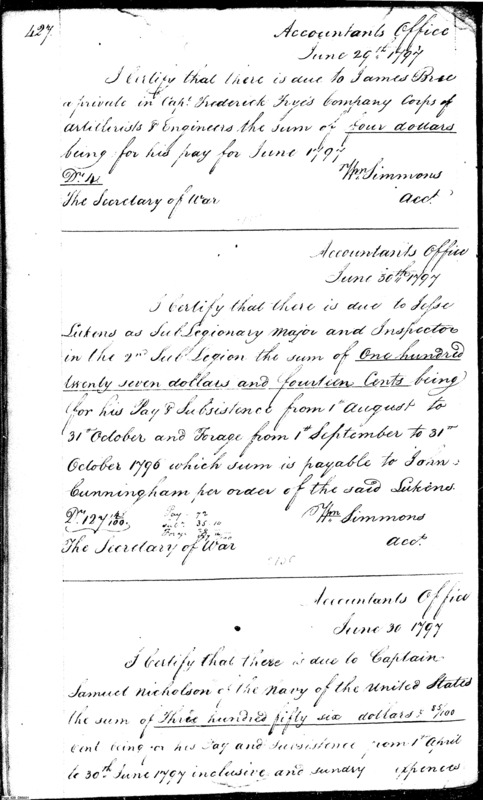 427
Accountants Office
June 29th 1797
I Certify that there is due to James
a private in Capt. Frederick Frye's Company Corps of
Artillerists & Engineers the sum of four dollars
being for his pay for June 1797
Drs 4 Wm Simmons
The Secretary of War Acct.
Accountants Office
June 30th 1797
I Certify that there is due to Jesse
Lukens as Sub Legionary Major and Inspector
in the 2nd Sub Legion the sum of One hundred
twenty seven dollars and fourteen Cents being
for his Pay & Subsistence from 1st August to
31st October and Forage from 1st September to 31st
October 1796 which sum is payable to John
Cunningham per order of the said Lukens.
Drs 127 14/100. Pay 72
Subs. 35 10
Wm Simmons
The Secretary of War Acct.
Accountants Office
June 30 1797
I Certify that there is due to Captain
Samuel Nicholson of the Navy of the United States
the sum of Three hundred fifty six dollars & 85/100
Cent being for his Pay and Subsistence from 1st April
to 30th June 1797 inclusive and sundry expences